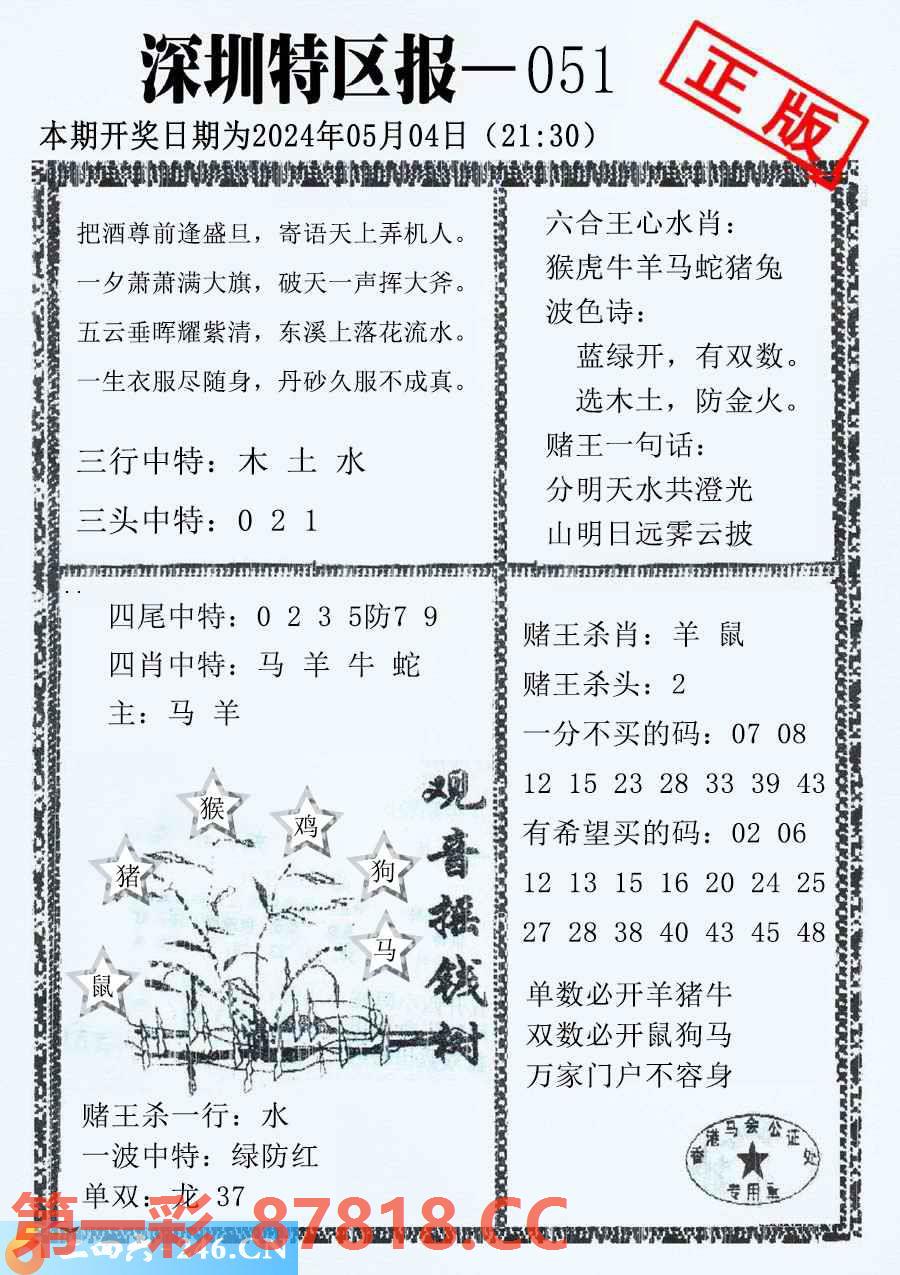 深圳特区报—051
正版
本期开奖日期为2024年05月04日（21:30）
把酒尊前逢盛旦，寄语天上弄机人。
一夕萧萧满大旗，破天一声挥大斧。
五云垂晖耀紫清，东溪上落花流水。
一生衣服尽随身，丹砂久服不成真。
三行中特：木 土 水
三头中特：0 2 1
六合王心水肖：
猴虎牛羊马蛇猪兔
波色诗：
蓝绿开，有双数。
选木土，防金火。
赌王一句话：
分明天水共澄光
山明日远霁云披
四尾中特：0 2 3 5防7 9
四肖中特：马 羊 牛 蛇
主：马 羊
猴
鸡
猪
狗
马
鼠
观音摇钱树
赌王杀一行：水
一波中特：绿防红
单双：龙 37
赌王杀肖：羊 鼠
赌王杀头：2
一分不买的码：07 08
12 15 23 28 33 39 43
有希望买的码：02 06
12 13 15 16 20 24 25
27 28 38 40 43 45 48
单数必开羊猪牛
双数必开鼠狗马
万家门户不容身
香港马会公证处
专用章
第一彩 87818.CC
246.CN